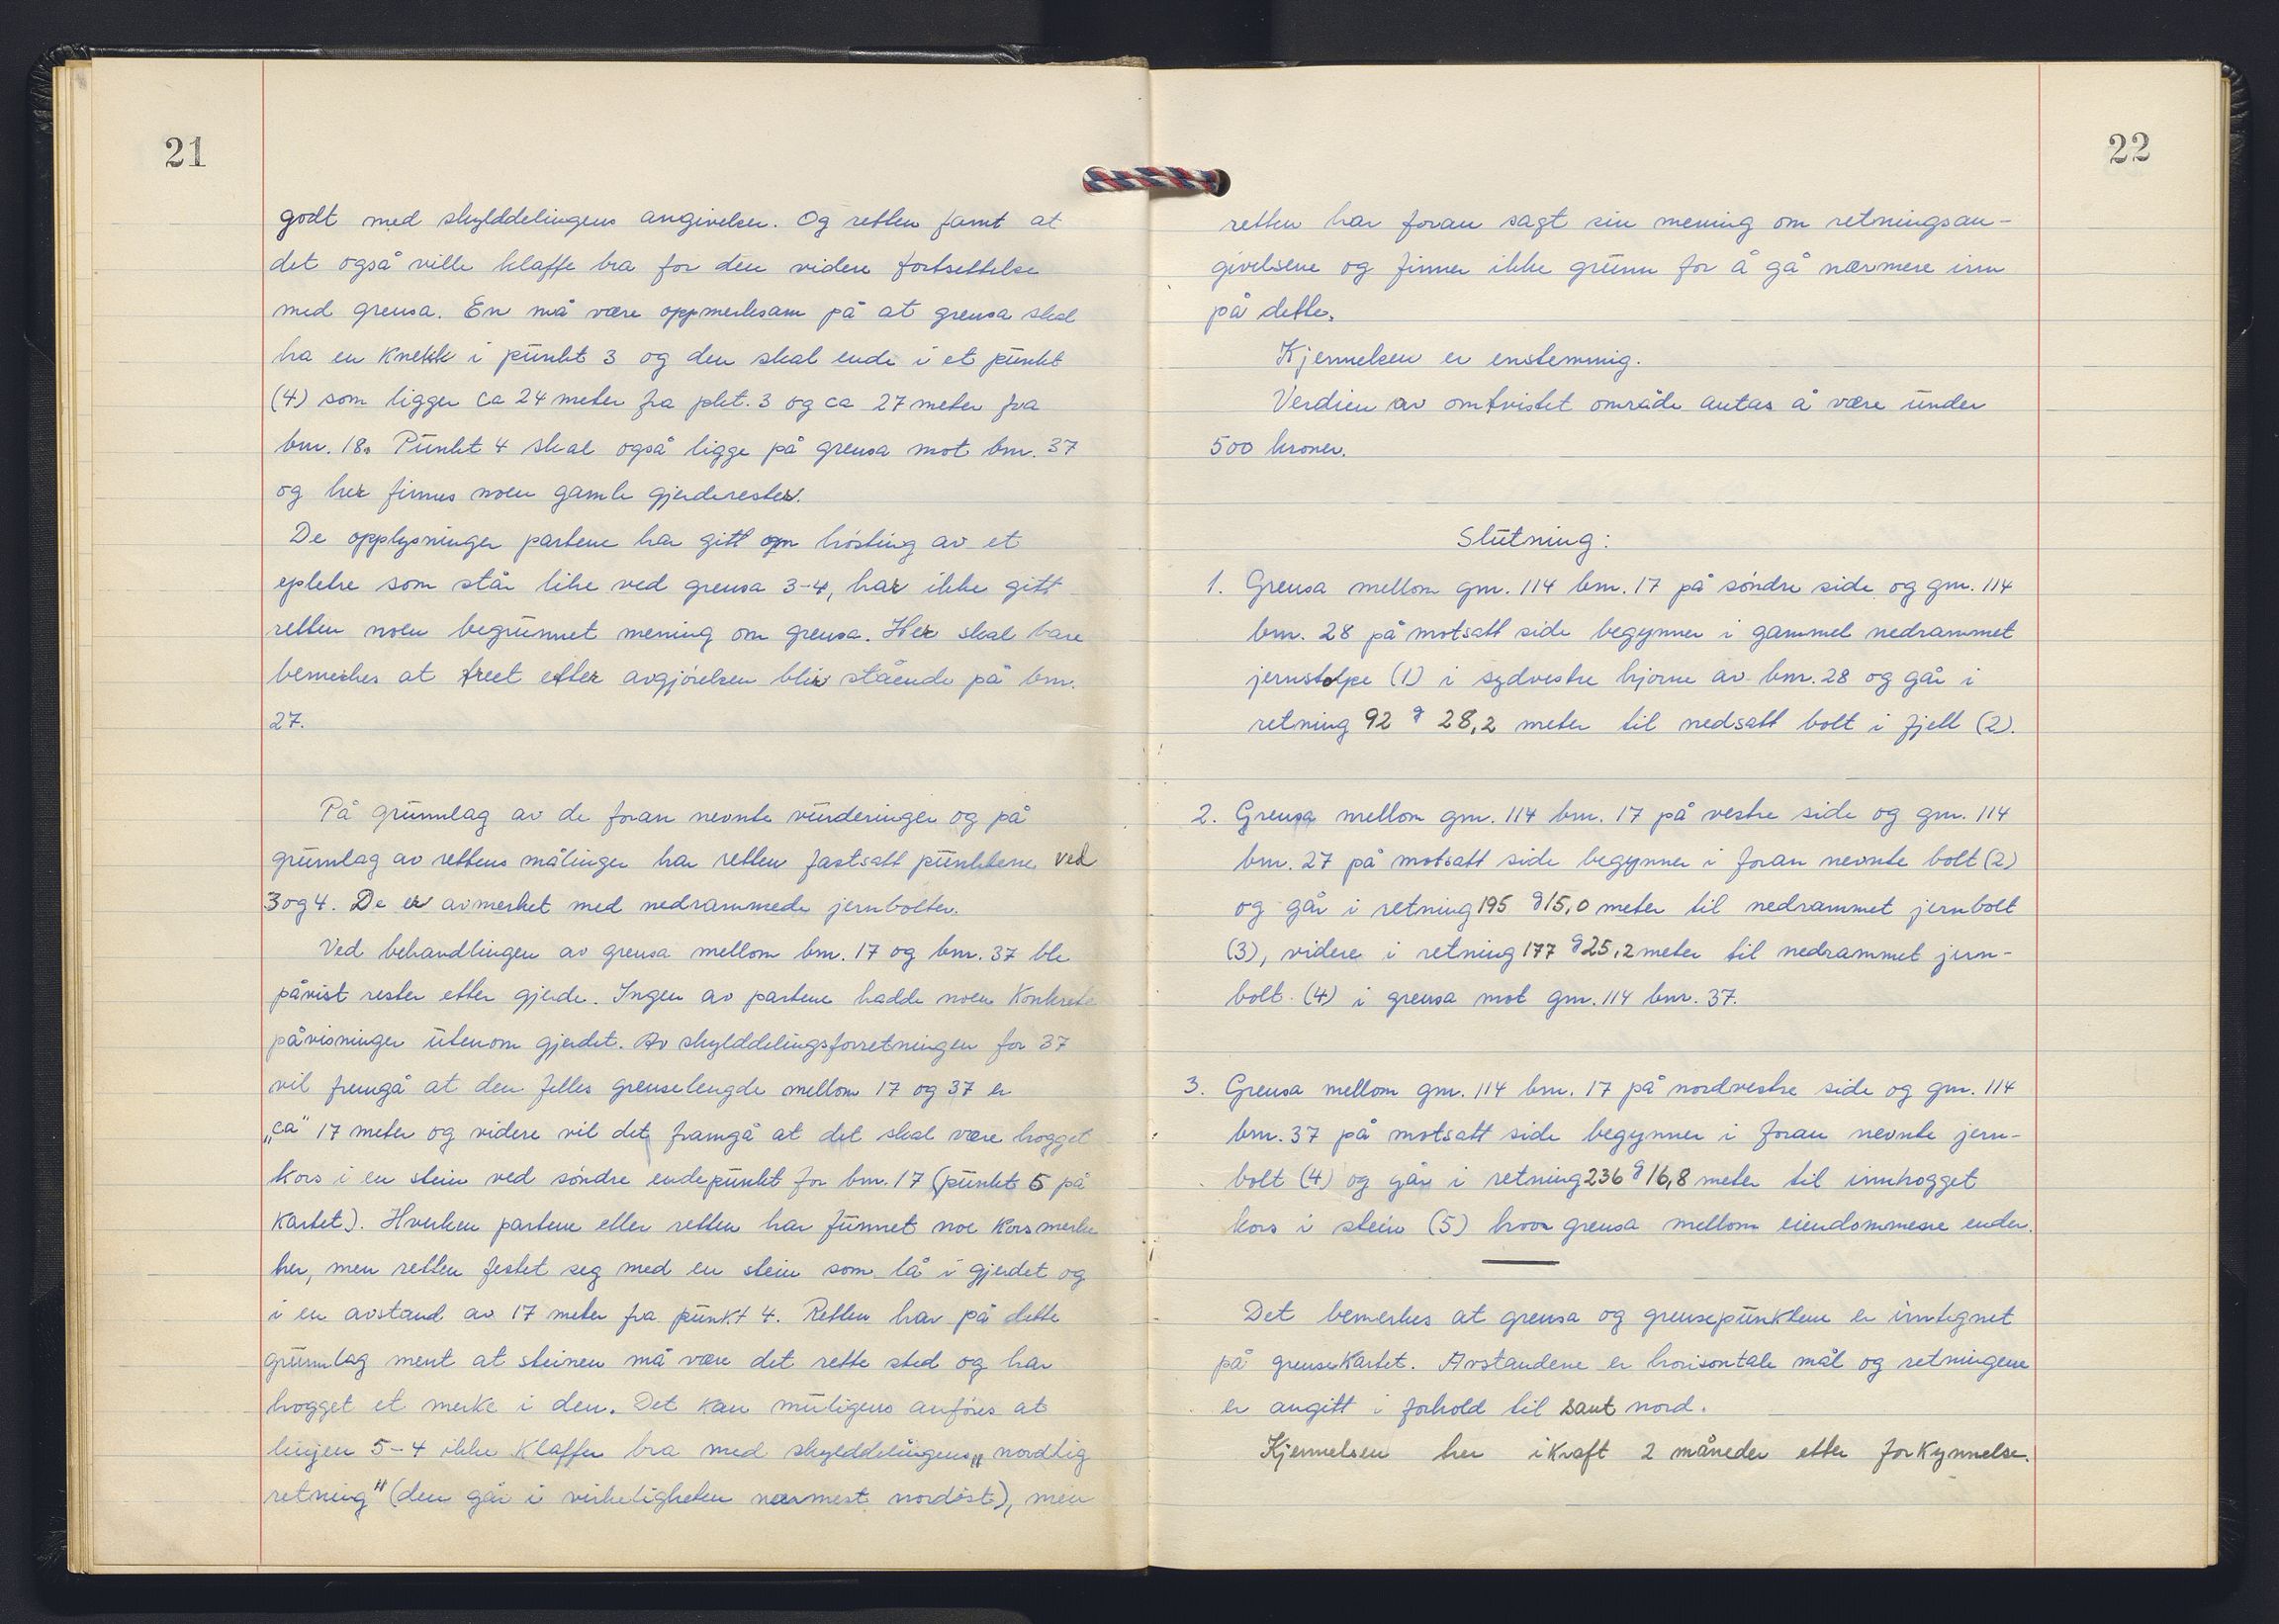 21
godt med skylddelingens angivelser. Og retten fant at
det også ville klaffe bra for den videre fortsettelse
med grensa. En må være oppmerksam på at grensa skal
ha en knekk i punkt 3 og den skal ende i et punkt
(4) som ligger ca 24 meter fra pkt. 3 og ca 27 meter fra
bnr. 18. Punkt 4 skal også ligge på grensa mot bnr. 37
og her finnes noen gamle gjerderester.
De opplysninger partene har gitt om høsting av et
epletre som står like ved grensa 3-4, har ikke gitt
retten noen begrunnet mening om grensa. Her skal bare
bemerkes at treet etter avgjørelsen blir stående på bnr.
27.
På grunnlag av de foran nevnte vurderinger og på
grunnlag av rettens målinger har retten fastsatt punktene ved
3 og 4. De er avmerket med nedrammede jernbolter.
Ved behandlingen av grensa mellom bnr. 17 og bnr. 37 ble
påvist rester etter gjerde. Ingen av partene hadde noen konkrete
påvisninger utenom gjerdet. Av skylddelingsforretningen for 37
vil fremgå at den felles grenselengde mellom 17 og 37 er
„ca" 17 meter og videre vil det framgå at det skal være hogget
kors i en stein ved søndre endepunkt for bnr. 17 (punkt 5 på
kartet). Hverken partene eller retten har funnet noe korsmerke
her, men retten festet seg med en stein som lå i gjerdet og
i en avstand av 17 meter fra punkt 4. Retten har på dette
grunnlag ment at steinen må være det rette sted og har
hogget et merke i den. Det kan muligens anføres at
linjen 5-4 ikke klaffer bra med skylddelingens „nordlig
retning" (den går i virkeligheten nærmest nordøst), men
22
retten har foran sagt sin mening om retningsan-
givelsene og finner ikke grunn for å gå nærmere inn
på dette.
Kjennelsen er enstemmig.
Verdien av omtvistet område antas å være under
500 kroner.
Slutning:
1. Grensa mellom gnr. 114 bnr. 17 på søndre side og gnr. 114
bnr. 28 på motsatt side begynner i gammel nedrammet
jernstolpe (1) i sydvestre hjørne av bnr. 28 og går i
retning 92 g 28,2 meter til nedsatt bolt i fjell (2).
2. Grensa mellom gnr. 114 bnr. 17 på vestre side og gnr. 114
bnr. 27 på motsatt side begynner i foran nevnte bolt (2)
og går i retning 195 g 15,0 meter til nedrammet jernbolt
(3), videre i retning 177 g 25,2 meter til nedrammet jern-
bolt (4) i grensa mot gnr. 114 bnr. 37.
3. Grensa mellom gnr. 114 bnr. 17 på nordvestre side og gnr. 114
bnr. 37 på motsatt side begynner i foran nevnte jern-
bolt (4) og går i retning 236 g 16,8 meter til innhogget
kors i stein (5) hvor grensa mellom eiendommene ender.
Det bemerkes at grensa og grensepunktene er inntegnet
på grensekartet. Avstandene er horisontale mål og retningene
er angitt i forhold til sant nord.
Kjennelsen trer i kraft 2 måneder etter forkynnelse.